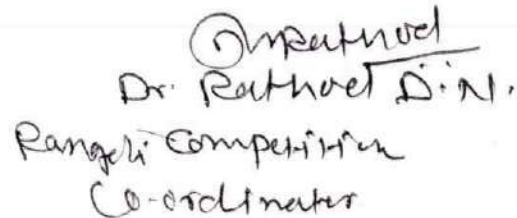 Dr. Rathod D.N.
Rangoli Competition
Co-ordinator